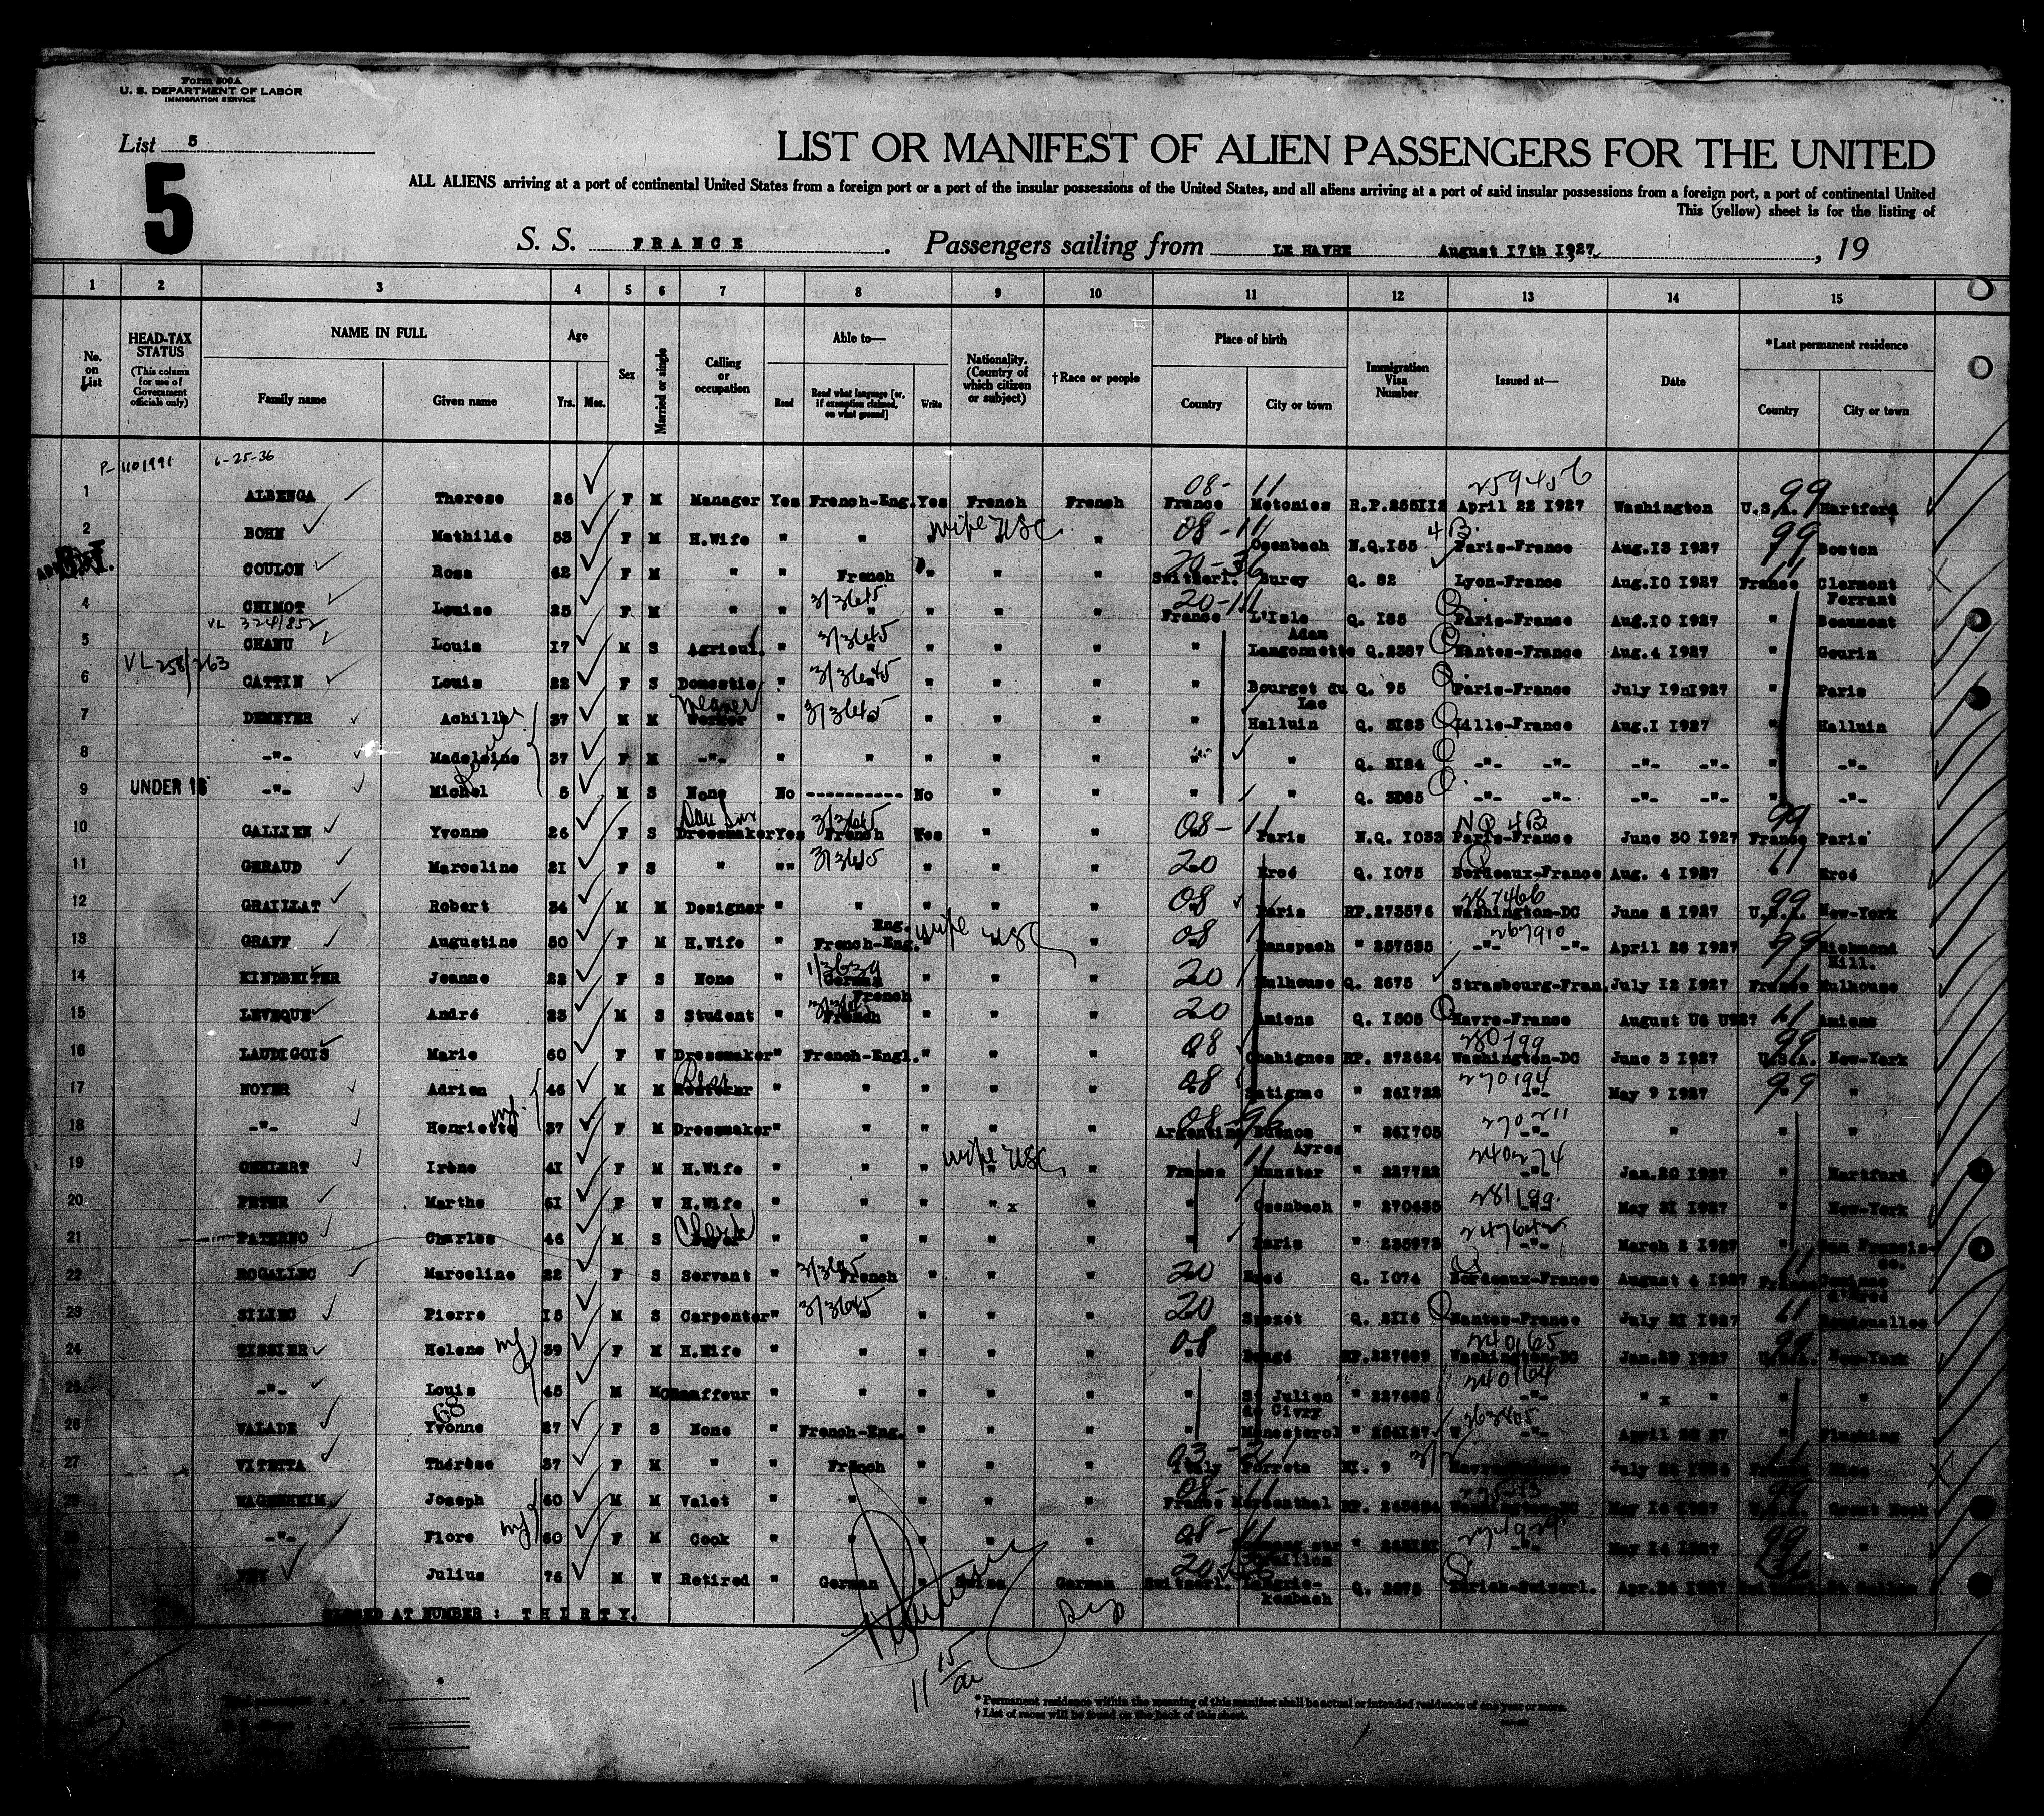 Form 500A
U. S. DEPARTMENT OF LABOR
IMMIGRATION SERVICE
List 5
5
LIST OR MANIFEST OF ALIEN PASSENGERS FOR THE UNITED
ALL ALIENS arriving at a port of continental United States from a foreign port or a port of the insular possessions of the United States, and all aliens arriving at a port of said insular possessions from a foreign port, a port of continental United
This (yellow) sheet is for the listing of
S. S. FRANCE. Passengers sailing from LE HAVRE August I7th I927, 19
1 2 3 4 5 6 7 8 9 10 11 12 13 14 15
No. on List
HEAD-TAX STATUS (This column for use of Government officials only)
NAME IN FULL
Family name Given name
Age Yrs. Mos.
Sex
Married or single
Calling or occupation
Able to—
Read Read what language [or, if exemption claimed, on what ground] Write
Nationality. (Country of which citizen or subject)
†Race or people
Place of birth
Country City or town
Immigration Visa Number
Issued at—
Date
*Last permanent residence
Country City or town
P-1101991 6-25-36 08-11 259456 99
1 ALBENGA Therese 26 F M Manager Yes French-Eng. Yes French French France Metonies R.P.255II2 April 22 I927 Washington U.S.A. Hartford
wife USC 08-11 4B 99
2 BOHN Mathilde 53 F M H.Wife " " " " Osenbach N.Q.I55 Paris-France Aug.I3 I927 Boston
20-36 11
COULON Rosa 62 F M " " French " " " Switzerl. Burcy Q. 82 Lyon-France Aug.I0 I927 France Clermont Ferrant
3/3645 20-11
4 CHIMOT Louise 25 F M " " " " " " France L'Isle Adam Q. I85 Paris-France Aug.I0 I927 " Beaumont
VL 324/852 3/3645
5 CHANU Louis I7 M S Agricul. " " " " " " Langonnette Q.2387 Nantes-France Aug.4 I927 " Gourin
VL 258/263 3/3645
6 CATTIN Louis 22 F S Domestic " " " " " Bourget du Lac Q. 95 Paris-France July I9nI927 " Paris
Weaver 3/3645
7 DEMEYER Achille 37 M M Worker " " " " " Halluin Q. 3I83 Lille-France Aug.I I927 " Halluin
8 -"- Madeleine 37 F M -"- " " " " " " " Q. 3I84 -"- -"- -"- -"- " -"-
UNDER 16
9 -"- Michel 5 M S None No ---------- No " " " " Q. 3D85 -"- -"- -"- -"- " -"-
3/3645 08-11 NQ 4B 99
10 GALLIEN Yvonne 26 F S Dressmaker Yes French Yes " " Paris N.Q. I033 Paris-France June 30 I927 France Paris
3/3645 20 11
11 GERAUD Marceline 2I F S " "" " " " Ercé Q. I075 Bordeaux-France Aug. 4 I927 " Ercé
08 287466 99
12 GRAILLAT Robert 34 M M Designer " " " " " Paris RP.273576 Washington-DC June 2 I927 U.S.A. New-York
wife USC 08 267910 99
13 GRAFF Augustine 50 F M H.Wife " French-Eng. " " Ranspach " 257535 -"- -"- April 28 I927 Richmond Hill.
20 11
14 KINDBEITER Jeanne 22 F S None " German French " " " Mulhouse Q. 2675 Strasbourg-Fran. July I2 I927 France Mulhouse
20 11
15 LEVEQUE André 23 M S Student " French " " " Amiens Q. I505 Havre-France August U6 U927 Amiens
08 280799 99
16 LAUDIGOIS Marie 60 F W Dressmaker " French-Engl. " " " Chahignes RP. 272624 Washington-DC June 3 I927 U.S.A. New-York
08 270194 99
17 NOYER Adrien 46 M M " " " " " Satignac " 26I722 -"- May 9 I927 " "
08-96 270211
18 -"- Henriette 37 F M Dressmaker " " " " " Argentina Buenos Ayres " 26I705 -"- " " "
wife USC 11 240274
19 OEHLERT Irène 4I F M H.Wife " " " " " France Munster " 227722 -"- Jan.20 I927 " Hartford
20 PETER Marthe 6I F W H.Wife " " " " x " " Osenbach " 270635 -"- May 3I I927 " New-York
Clerk 247642
21 PATERNO Charles 46 M S " " " " " " Paris " 235973 -"- March 2 I927 " San Francis-co.
20 11
22 ROGALLEC Marceline 22 F S Servant " French " " " Ercé Q. I074 Bordeaux-France August 4 I927 France
3/3645 20 11
23 SILLEC Pierre I5 M S Carpenter " " " " Spezet Q. 2II6 Nantes-France July 2I I927
08 240165 99
24 TISSIER Helene 39 F M H.Wife " " " " " RP.227689 Washington-DC Jan.29 I927 U.S.A. New-York
240164
25 -"- Louis 45 M M Chauffeur " " " " " " St Julien de Civry " 227688 -"- " x " " "
26 VALADE Yvonne 27 F S None " French-Eng. " " " " Monesterol " 254I27 -"- April 22 27 " Flushing
27 VITETTA Thérèse 37 F M " " French " " " Italy
08-11 99
28 WAGENHEIM Joseph 60 M M Valet " " " " " France Washington-DC May I6 I927 U.S.A. Great Neck
08-11 99
-"- Flore 60 F M Cook " " " " " " -"- May I4 I927 "
20-36 36
Julius 76 M W Retired " German " Swiss German Switzerl. Q. 2275 Zürich-Swizerl. Apr.26 I927
CLOSED AT NUMBER : T H I R T Y.
11 15/am
* Permanent residence within the meaning of this manifest shall be actual or intended residence of one year or more.
† List of races will be found on the back of this sheet.